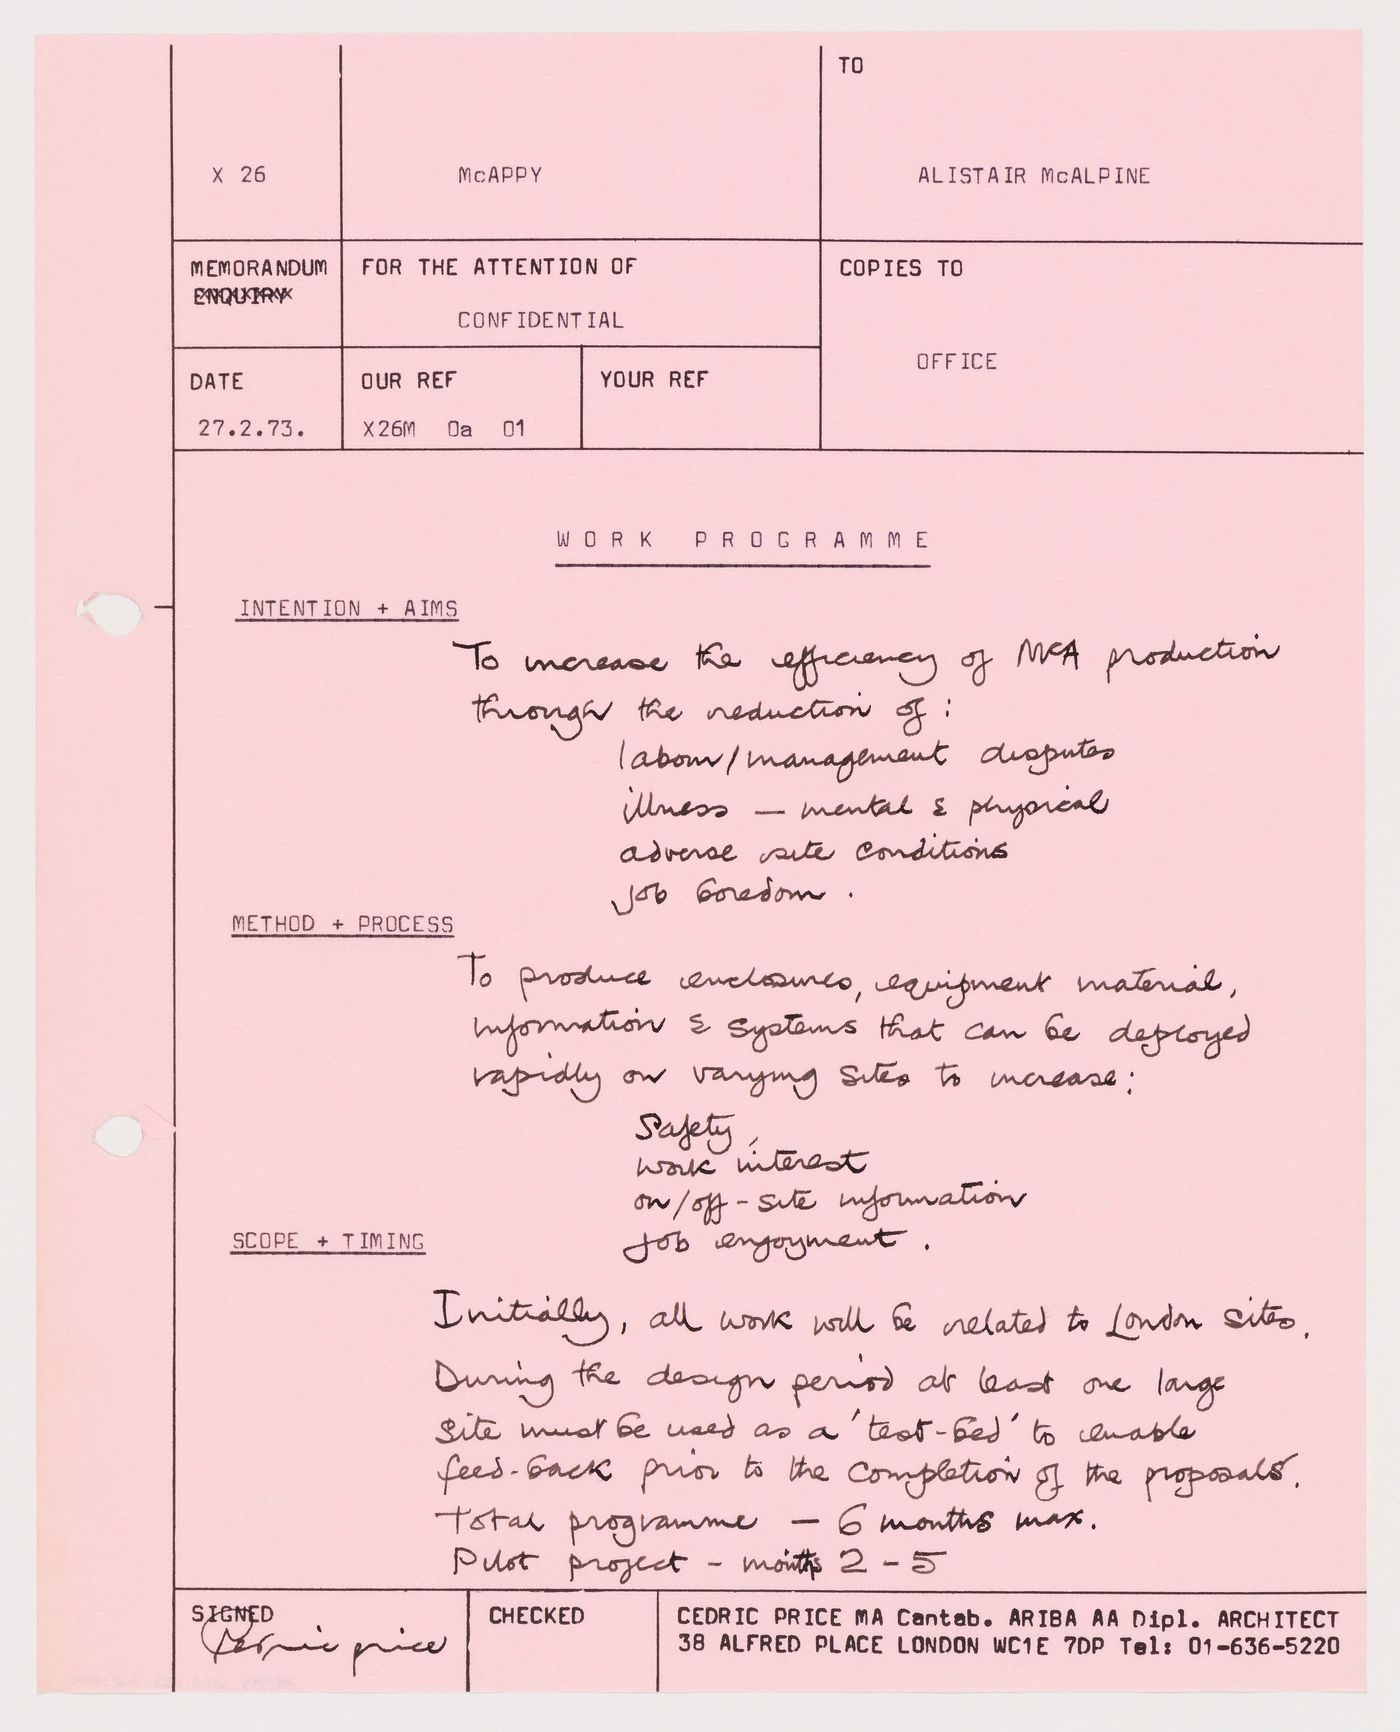 TO
X 26
McAPPY
ALISTAIR McALPINE
MEMORANDUM
ENQUIRY
FOR THE ATTENTION OF
CONFIDENTIAL
COPIES TO
OFFICE
DATE
27.2.73.
OUR REF
X26M 0a 01
YOUR REF
WORK PROGRAMME
INTENTION + AIMS
To increase the efficiency of McA production
through the reduction of :
labour/management disputes
illness — mental & physical
adverse site conditions
job boredom .
METHOD + PROCESS
To produce enclosures, equipment material,
information & systems that can be deployed
rapidly on varying sites to increase:
Safety,
work interest
on/off-site information
job enjoyment .
SCOPE + TIMING
Initially, all work will be related to London sites.
During the design period at least one large
site must be used as a 'test-bed' to enable
feed-back prior to the completion of the proposals.
Total programme — 6 months max.
Pilot project - months 2-5
SIGNED
Cedric Price
CHECKED
CEDRIC PRICE MA Cantab. ARIBA AA Dipl. ARCHITECT
38 ALFRED PLACE LONDON WC1E 7DP Tel: 01-636-5220